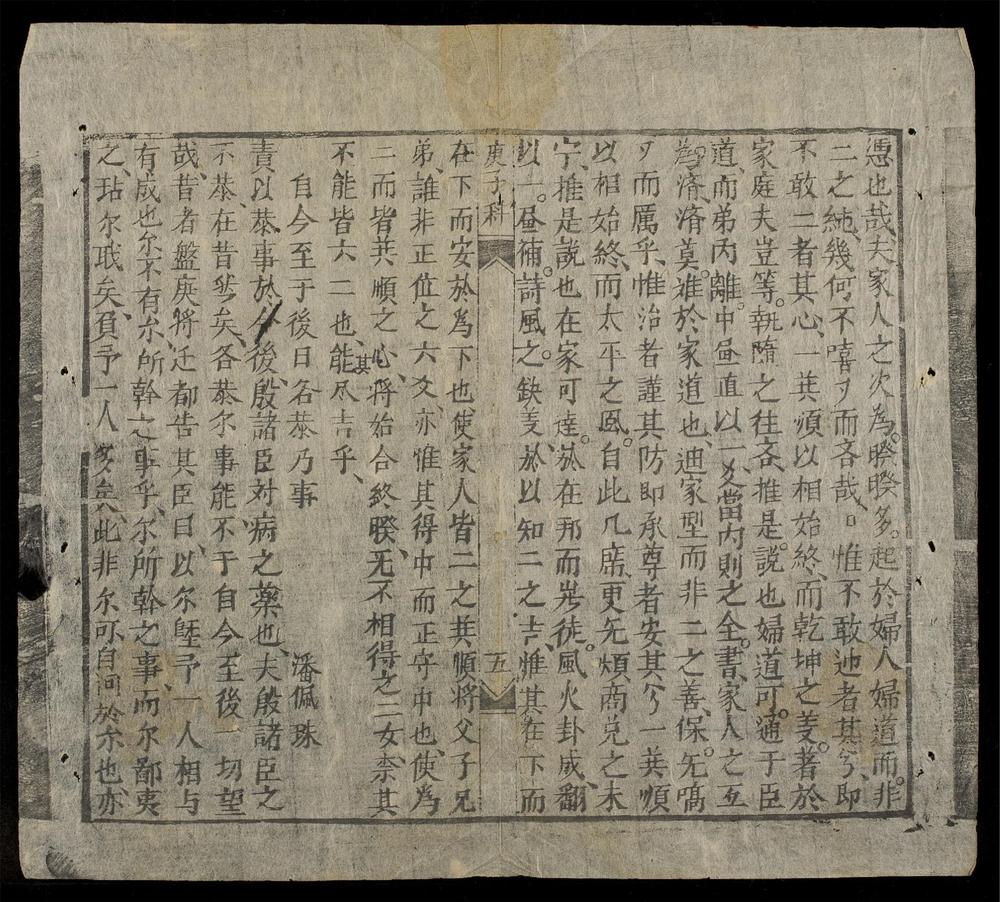 憑也哉夫家人之次為睽睽多起於婦人婦道而非
二之純幾何不嘻歹而吝哉惟不敢迆者其分即
不敢二者其心一共順以相始終而乾坤之美著於
家庭夫豈等執隨之往吝推是説也婦道可通于臣
道而弟丙離中昼直以一爻當内則之全書家人之互
為済済莫進於家道也迪家型而非二之善保旡嗃
歹而厲乎惟治者謹其防即承尊者安其分一共順
以相始終而太平之風自此几席更旡煩商兑之未
宁推是説也在家可達於在邦而岂徒風火卦成翻
以一昼補詩風之缺美於以知二之吉惟其在下而
庚子科 五
在下而安於為下也使家人皆二之共順將父子兄
弟誰非正位之六爻亦惟其得中而正守中也使為
二而皆共順之心將始合終睽无不相得之二女柰其
不能皆六二也能其尽吉乎
自今至于後日各恭乃事
潘佩珠
責以恭事於今後殷諸臣対病之藥也夫殷諸臣之
不恭在昔然矣各恭尔事能不于自今至後一切望
哉昔者盤庚將迁都告其臣曰以尔曁予一人相与
有成也尔不有尔所幹之事乎尔所幹之事而尔鄙夷
之玷尔職矣負予一人多矣此非尔可自问於尔也亦